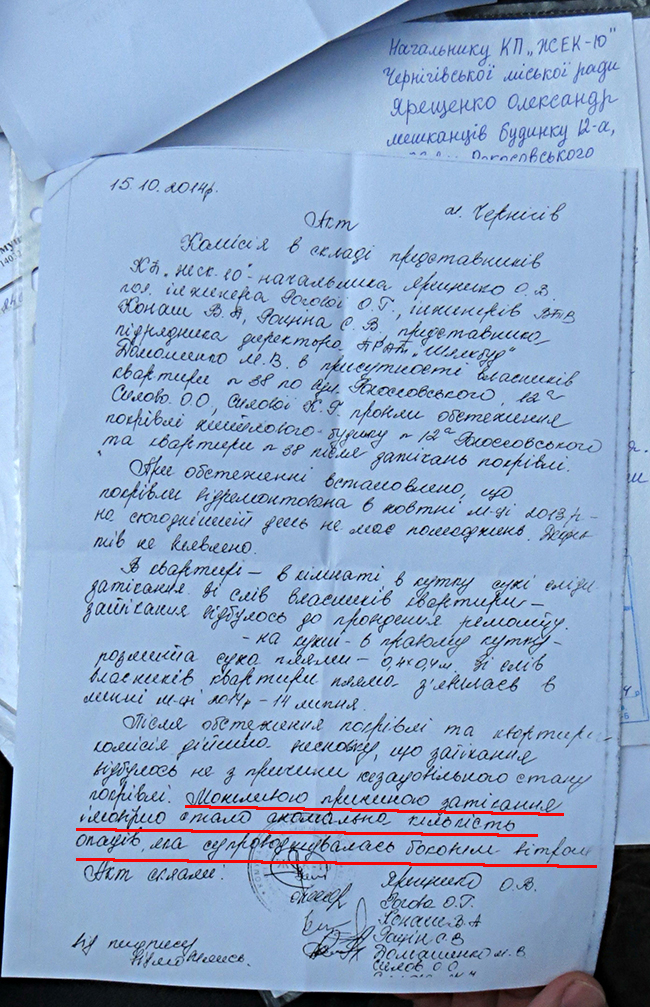 Начальнику КП „ЖЕК-10"
Чернігівської міської ради
Ярещенко Олександр
мешканців будинку 12-а,
15.10.2014р.
м. Чернігів
Акт
Комісія в складі представників
КП „ЖЕК-10" - начальника Ярещенко О.В.
інженера Рогової О.Г., інженерів ВТВ
Конаш В.А, Рощіна С.В. представника
підрядника директора ПРАТ
Домашенко М.В. в присутності власників
квартири №38 по вул. Рокоссовського, 12а
Силова О.О, Силової К.Г провели обстеження
покрівлі житлового будинку №12а Рокоссовського
та квартири №38 після затікань покрівлі.
При обстеженні встановлено, що
покрівля відремонтована в жовтні м-ці 2013р -
на сьогоднішній день не має пошкоджень. Дефек-
тів не виявлено.
В квартирі - в кімнаті в кутку сухі сліди
затікання. Зі слів власників квартири -
затікання відбулось до проведення ремонту.
- на кухні - в правому кутку -
розмита суха пляма - 0,4х0,4м. Зі слів
власників квартири пляма з'явилась в
липні м-ці 2014р - 14 липня.
Після обстеження покрівлі та квартири
комісія дійшла висновку, що затікання
відбулось не з причини незадовільного стану
покрівлі. Можливою причиною затікання
ймовірно стало аномальна кількість
опадів, яка супроводжувалась боковим вітром
Акт склали:
Ярещенко О.В.
Рогова О.Г.
Конаш В.А
Рощін С.В
Домашенко М.В
Силов О.О
Від підпису
відмовились.